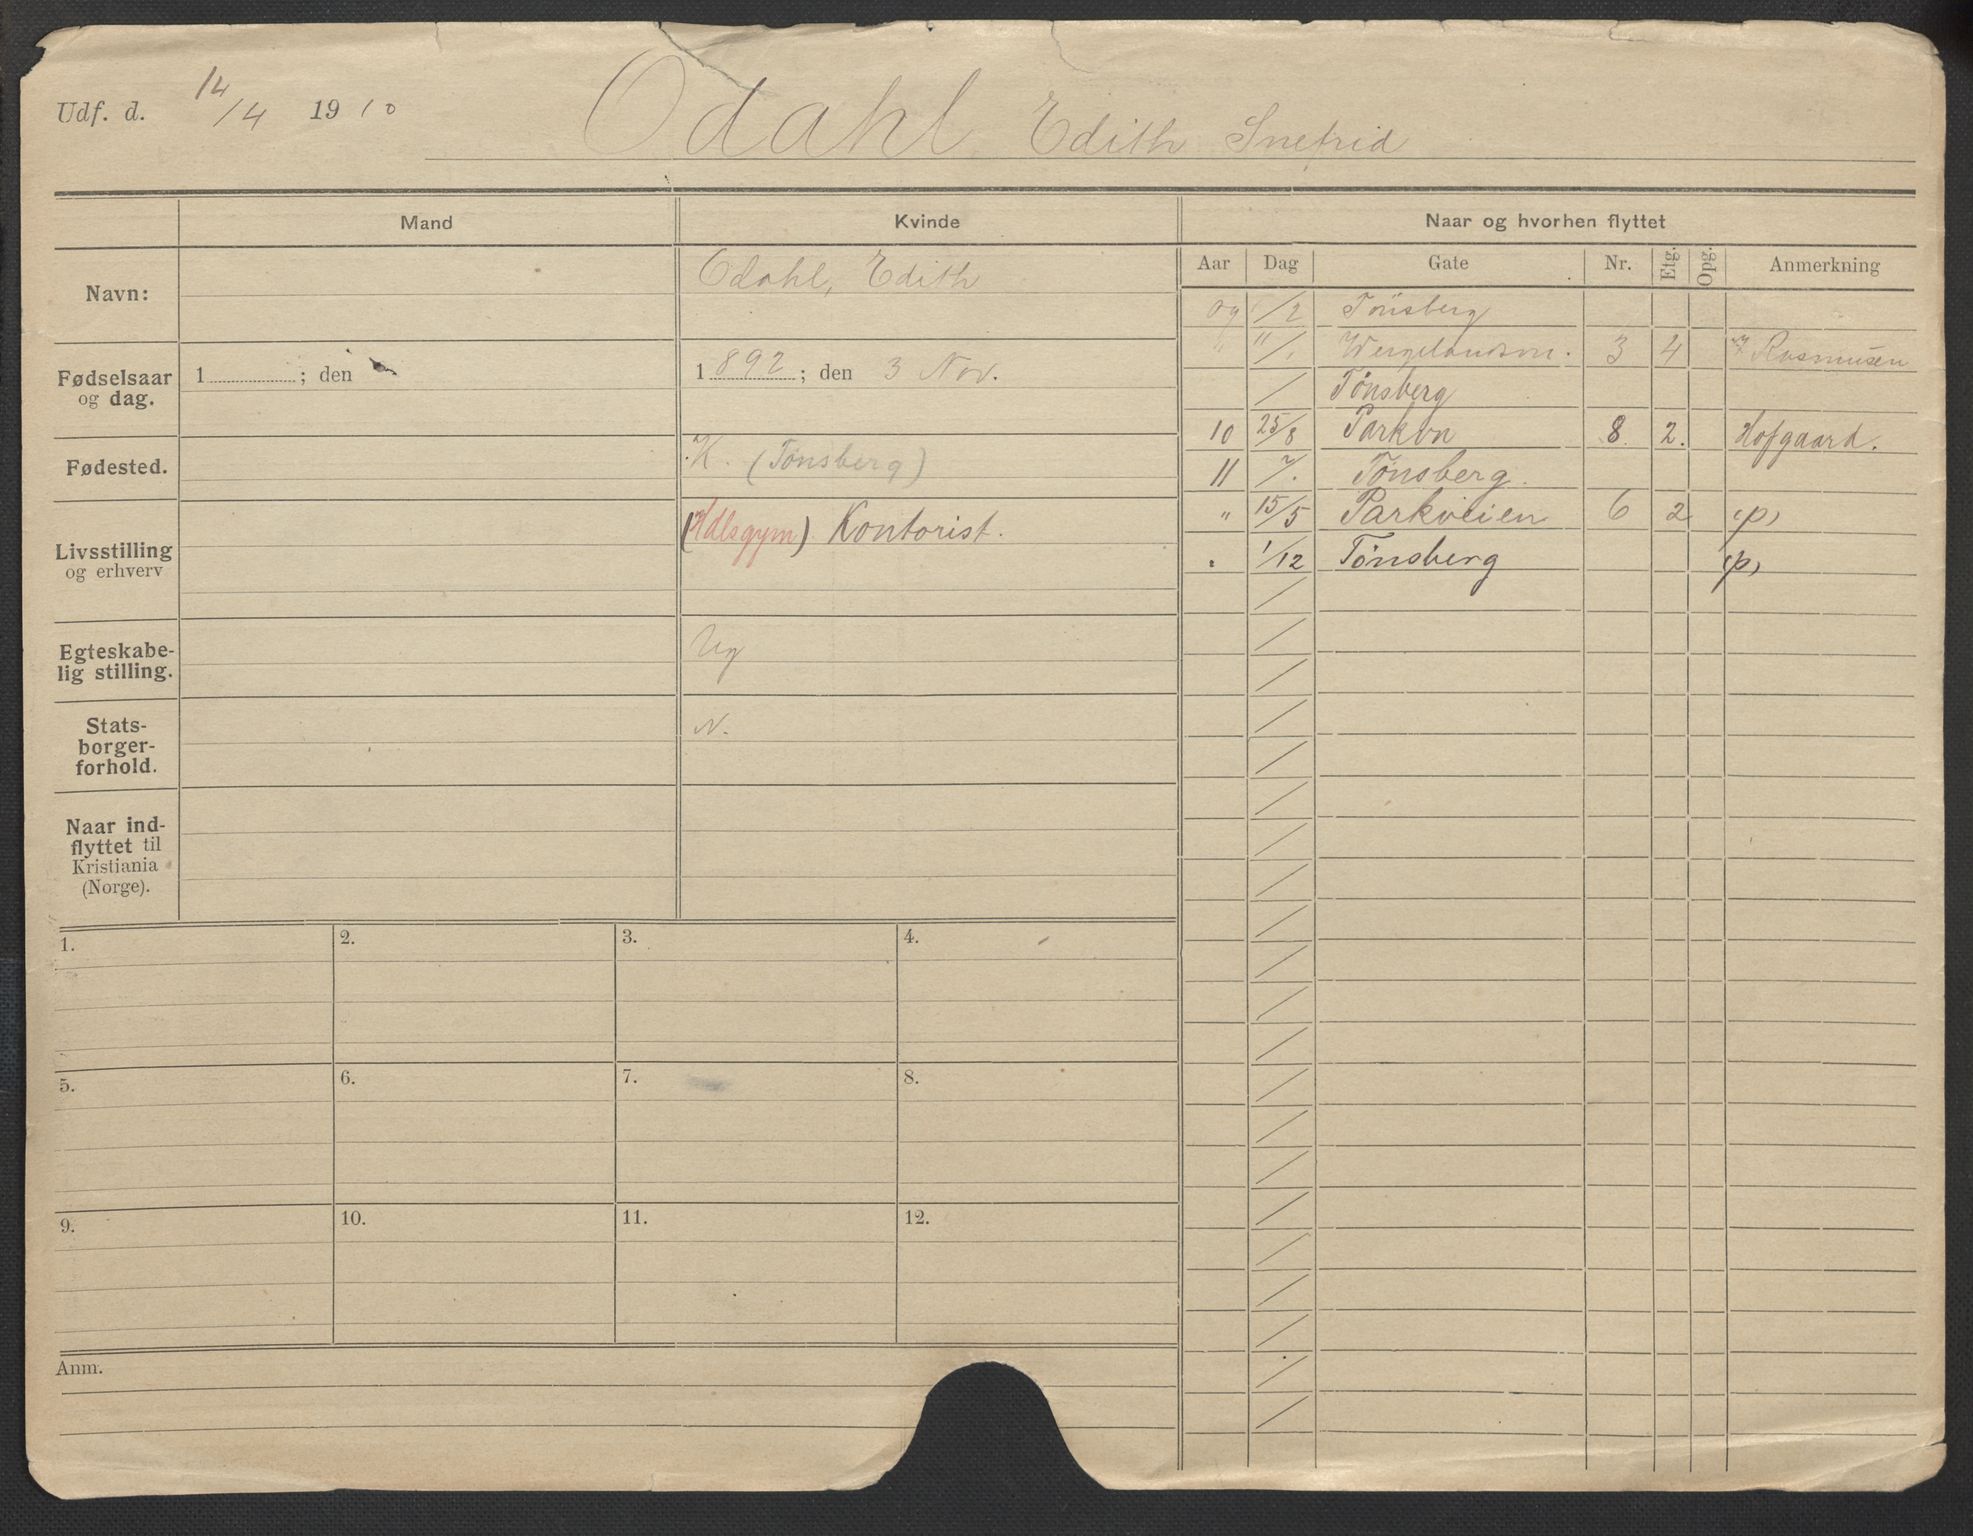 Udf. d. 14/4 1910 Odahl, Edith Snefrid
Mand Kvinde Naar og hvorhen flyttet
Aar Dag Gate Nr. Etg. Opg. Anmerkning
Navn: Odahl, Edith
Fødselsaar og dag. 1 ; den 1892; den 3 Nov.
Fødested. K. (Tønsberg)
Livsstilling og erhverv (Hdlsgym) Kontorist.
Egteskabe-
lig stilling. Ug
Stats-
borger-
forhold. N.
Naar ind-
flyttet til
Kristiania
(Norge).
09 1/2 Tønsberg
" "/" Wergelandsvn. 3 4 Rasmusen
/ Tønsberg
10 25/8 Parkvn 8. 2. Hofgaard.
11 /. Tønsberg.
" 15/5 Parkveien 6 2 (p)
" 1/12 Tønsberg (p)
1. 2. 3. 4.
5. 6. 7. 8.
9. 10. 11. 12.
Anm.